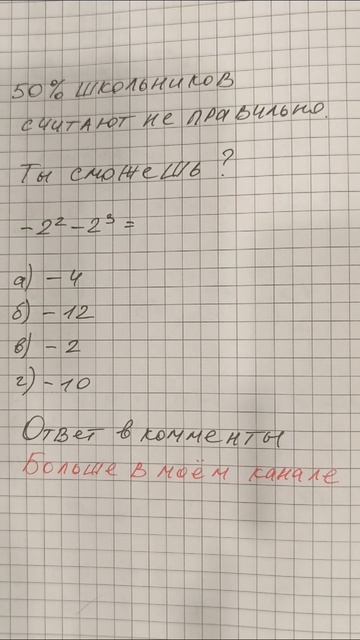 50% школьников
считают не правильно.
Ты сможешь?
-2²-2³=
а) -4
б) -12
в) -2
г) -10
Ответ в комменты
Больше в моём канале